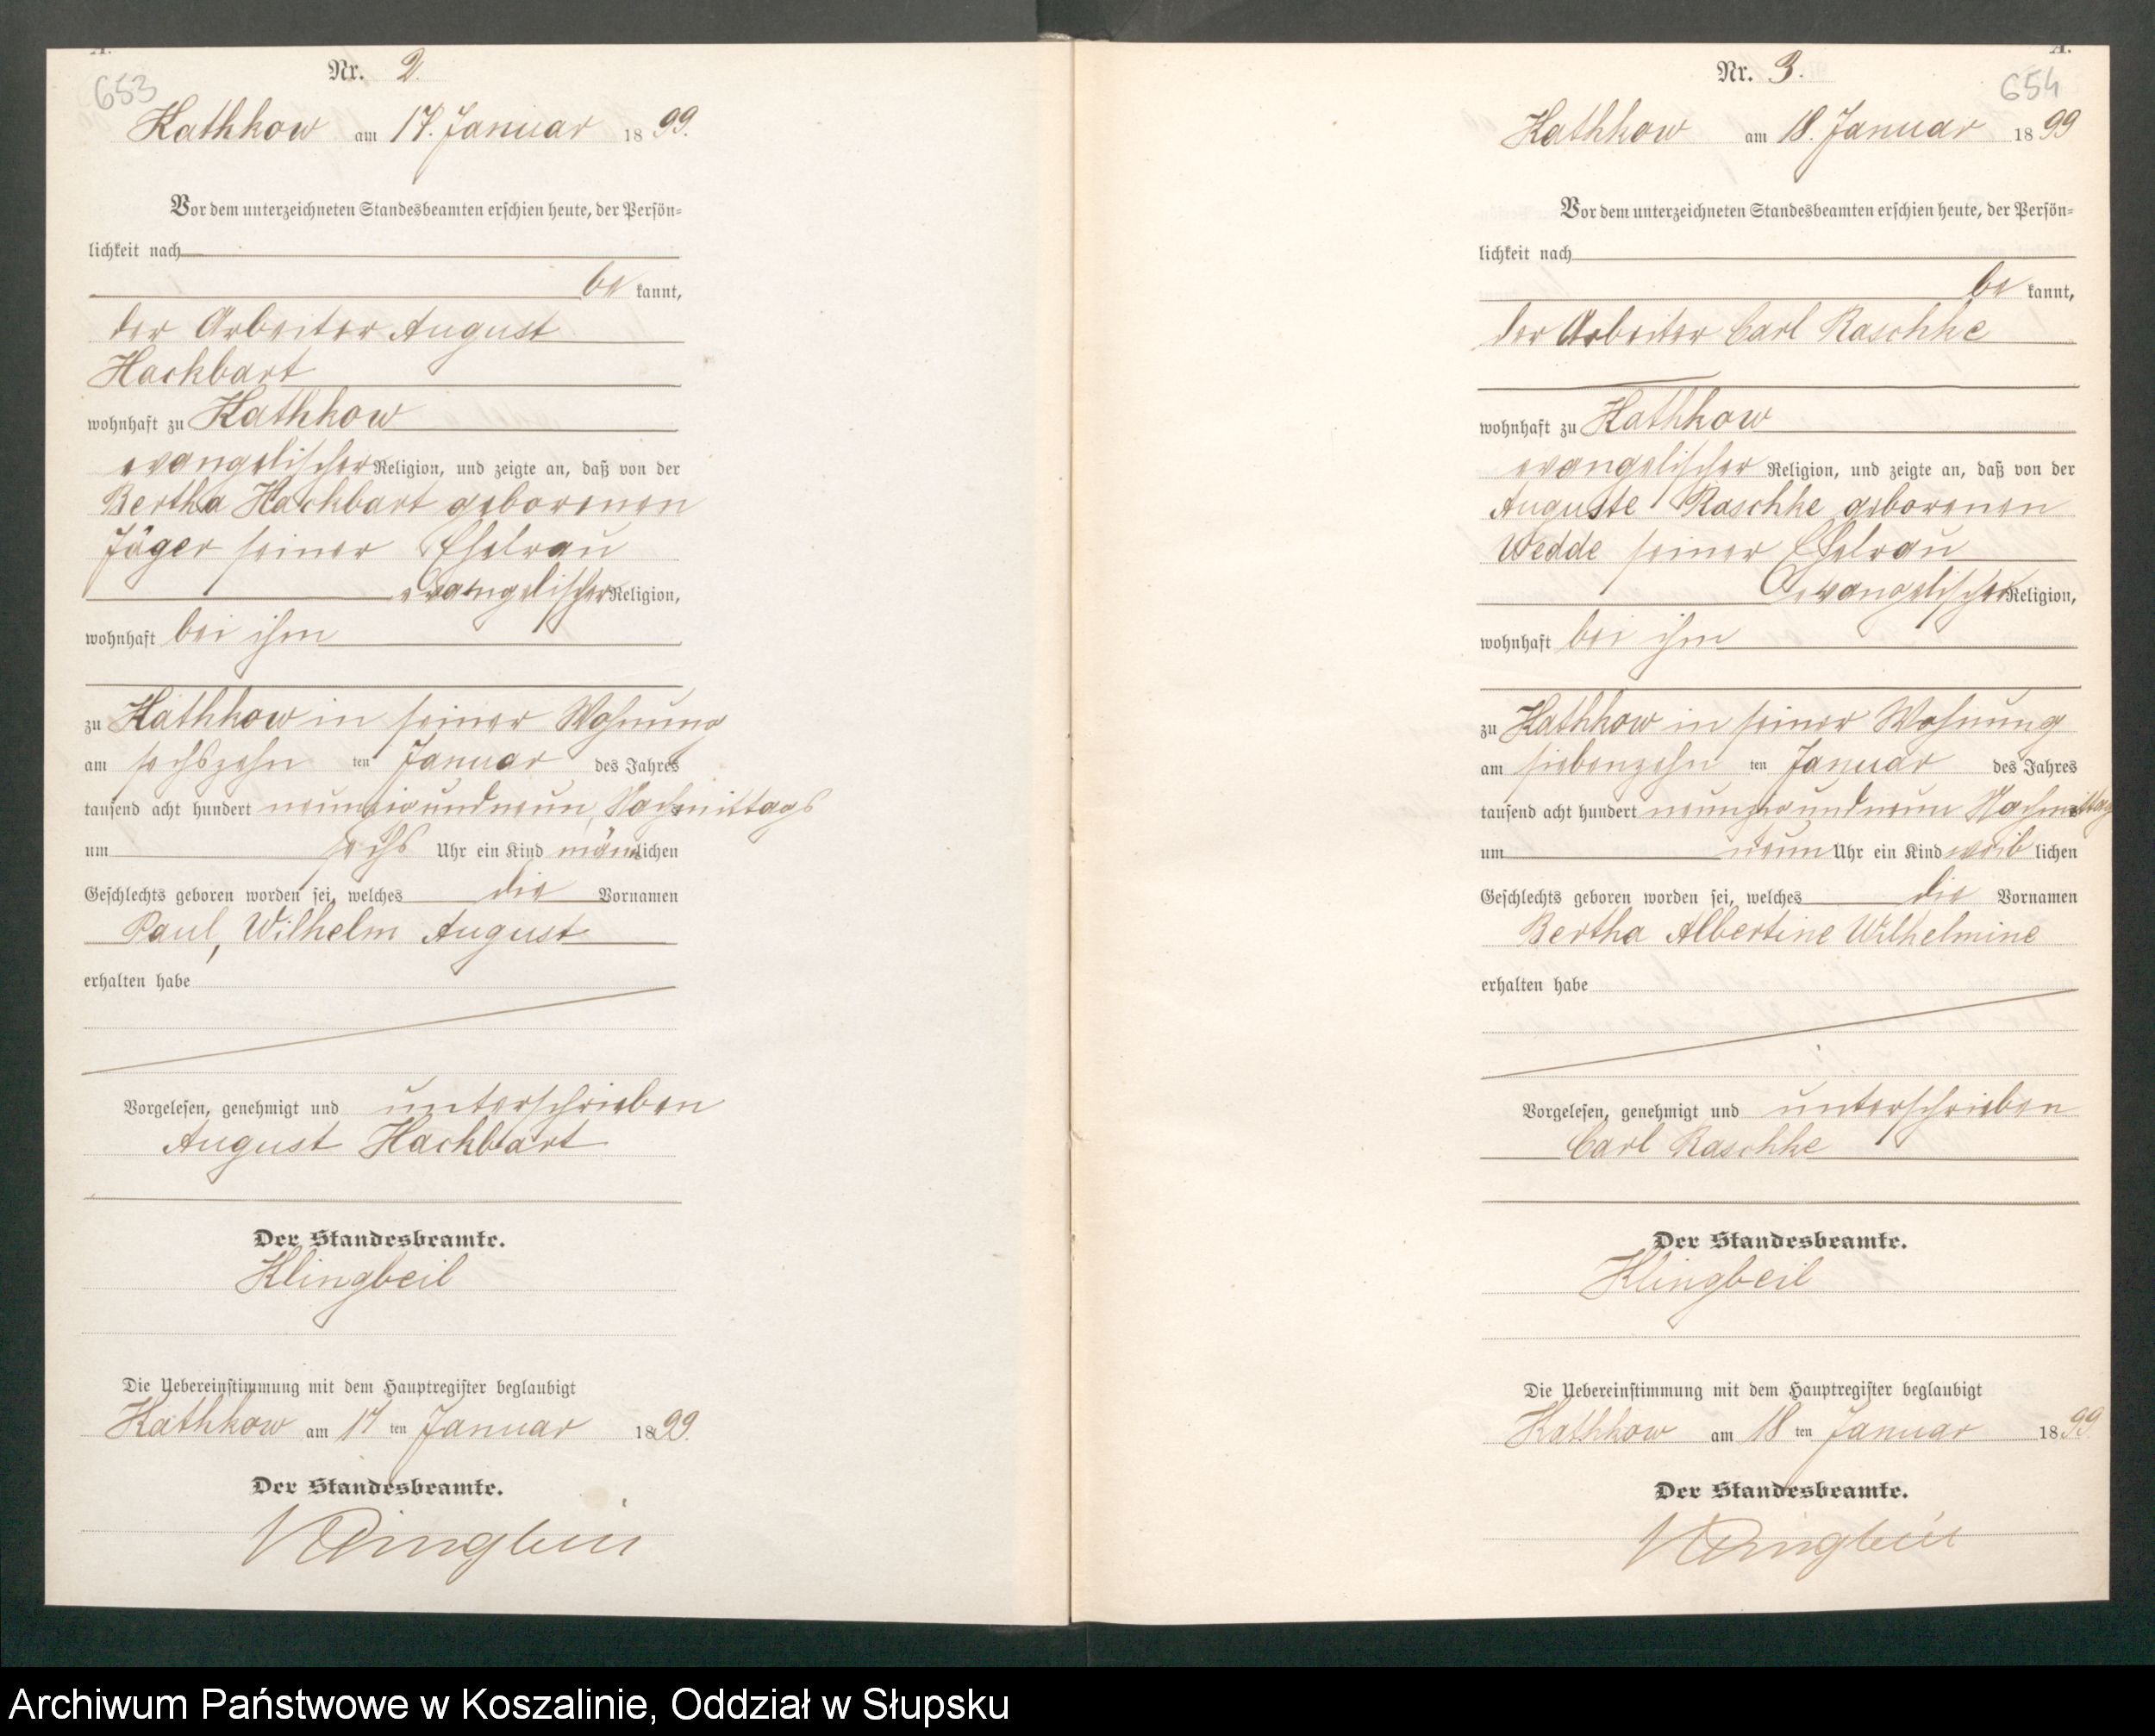 A.
653
Nr. 2.
Kathkow am 17. Januar 1899.
Vor dem unterzeichneten Standesbeamten erschien heute, der Persön-
lichkeit nach
be kannt,
der Arbeiter August
Hackbart
wohnhaft zu Kathkow
evangelischer Religion, und zeigte an, daß von der
Bertha Hackbart geborenen
Jäger seiner Ehefrau
evangelischer Religion,
wohnhaft bei ihm
zu Kathkow in seiner Wohnung
am sechszehn ten Januar des Jahres
tausend acht hundert neunzigundneun, Nachmittags
um sechs Uhr ein Kind männlichen
Geschlechts geboren worden sei, welches die Vornamen
Paul, Wilhelm August
erhalten habe
Vorgelesen, genehmigt und unterschrieben
August Hackbart
Der Standesbeamte.
Klingbeil
Die Uebereinstimmung mit dem Hauptregister beglaubigt
Kathkow am 17 ten Januar 1899.
Der Standesbeamte.
Klingbeil
A.
Nr. 3.
654
Kathkow am 18. Januar 1899
Vor dem unterzeichneten Standesbeamten erschien heute, der Persön-
lichkeit nach
be kannt,
der Arbeiter Carl Raschke
wohnhaft zu Kathkow
evangelischer Religion, und zeigte an, daß von der
Auguste Raschke geborenen
Wedde seiner Ehefrau
evangelischer Religion,
wohnhaft bei ihm
zu Kathkow in seiner Wohnung
am siebenzehn ten Januar des Jahres
tausend acht hundert neunzigundneun Nachmittags
um neun Uhr ein Kind weib lichen
Geschlechts geboren worden sei, welches die Vornamen
Bertha Albertine Wilhelmine
erhalten habe
Vorgelesen, genehmigt und unterschrieben
Carl Raschke
Der Standesbeamte.
Klingbeil
Die Uebereinstimmung mit dem Hauptregister beglaubigt
Kathkow am 18 ten Januar 1899.
Der Standesbeamte.
Klingbeil
Archiwum Państwowe w Koszalinie, Oddział w Słupsku